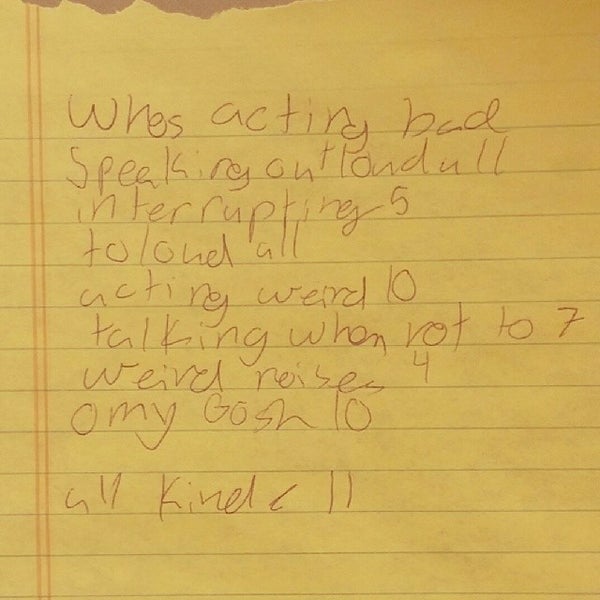 Whos acting bad
Speaking out loud all
interrupting 5
to loud all
acting weird 10
talking when not to 7
weird noises 4
omy Gosh 10
all kinds 11